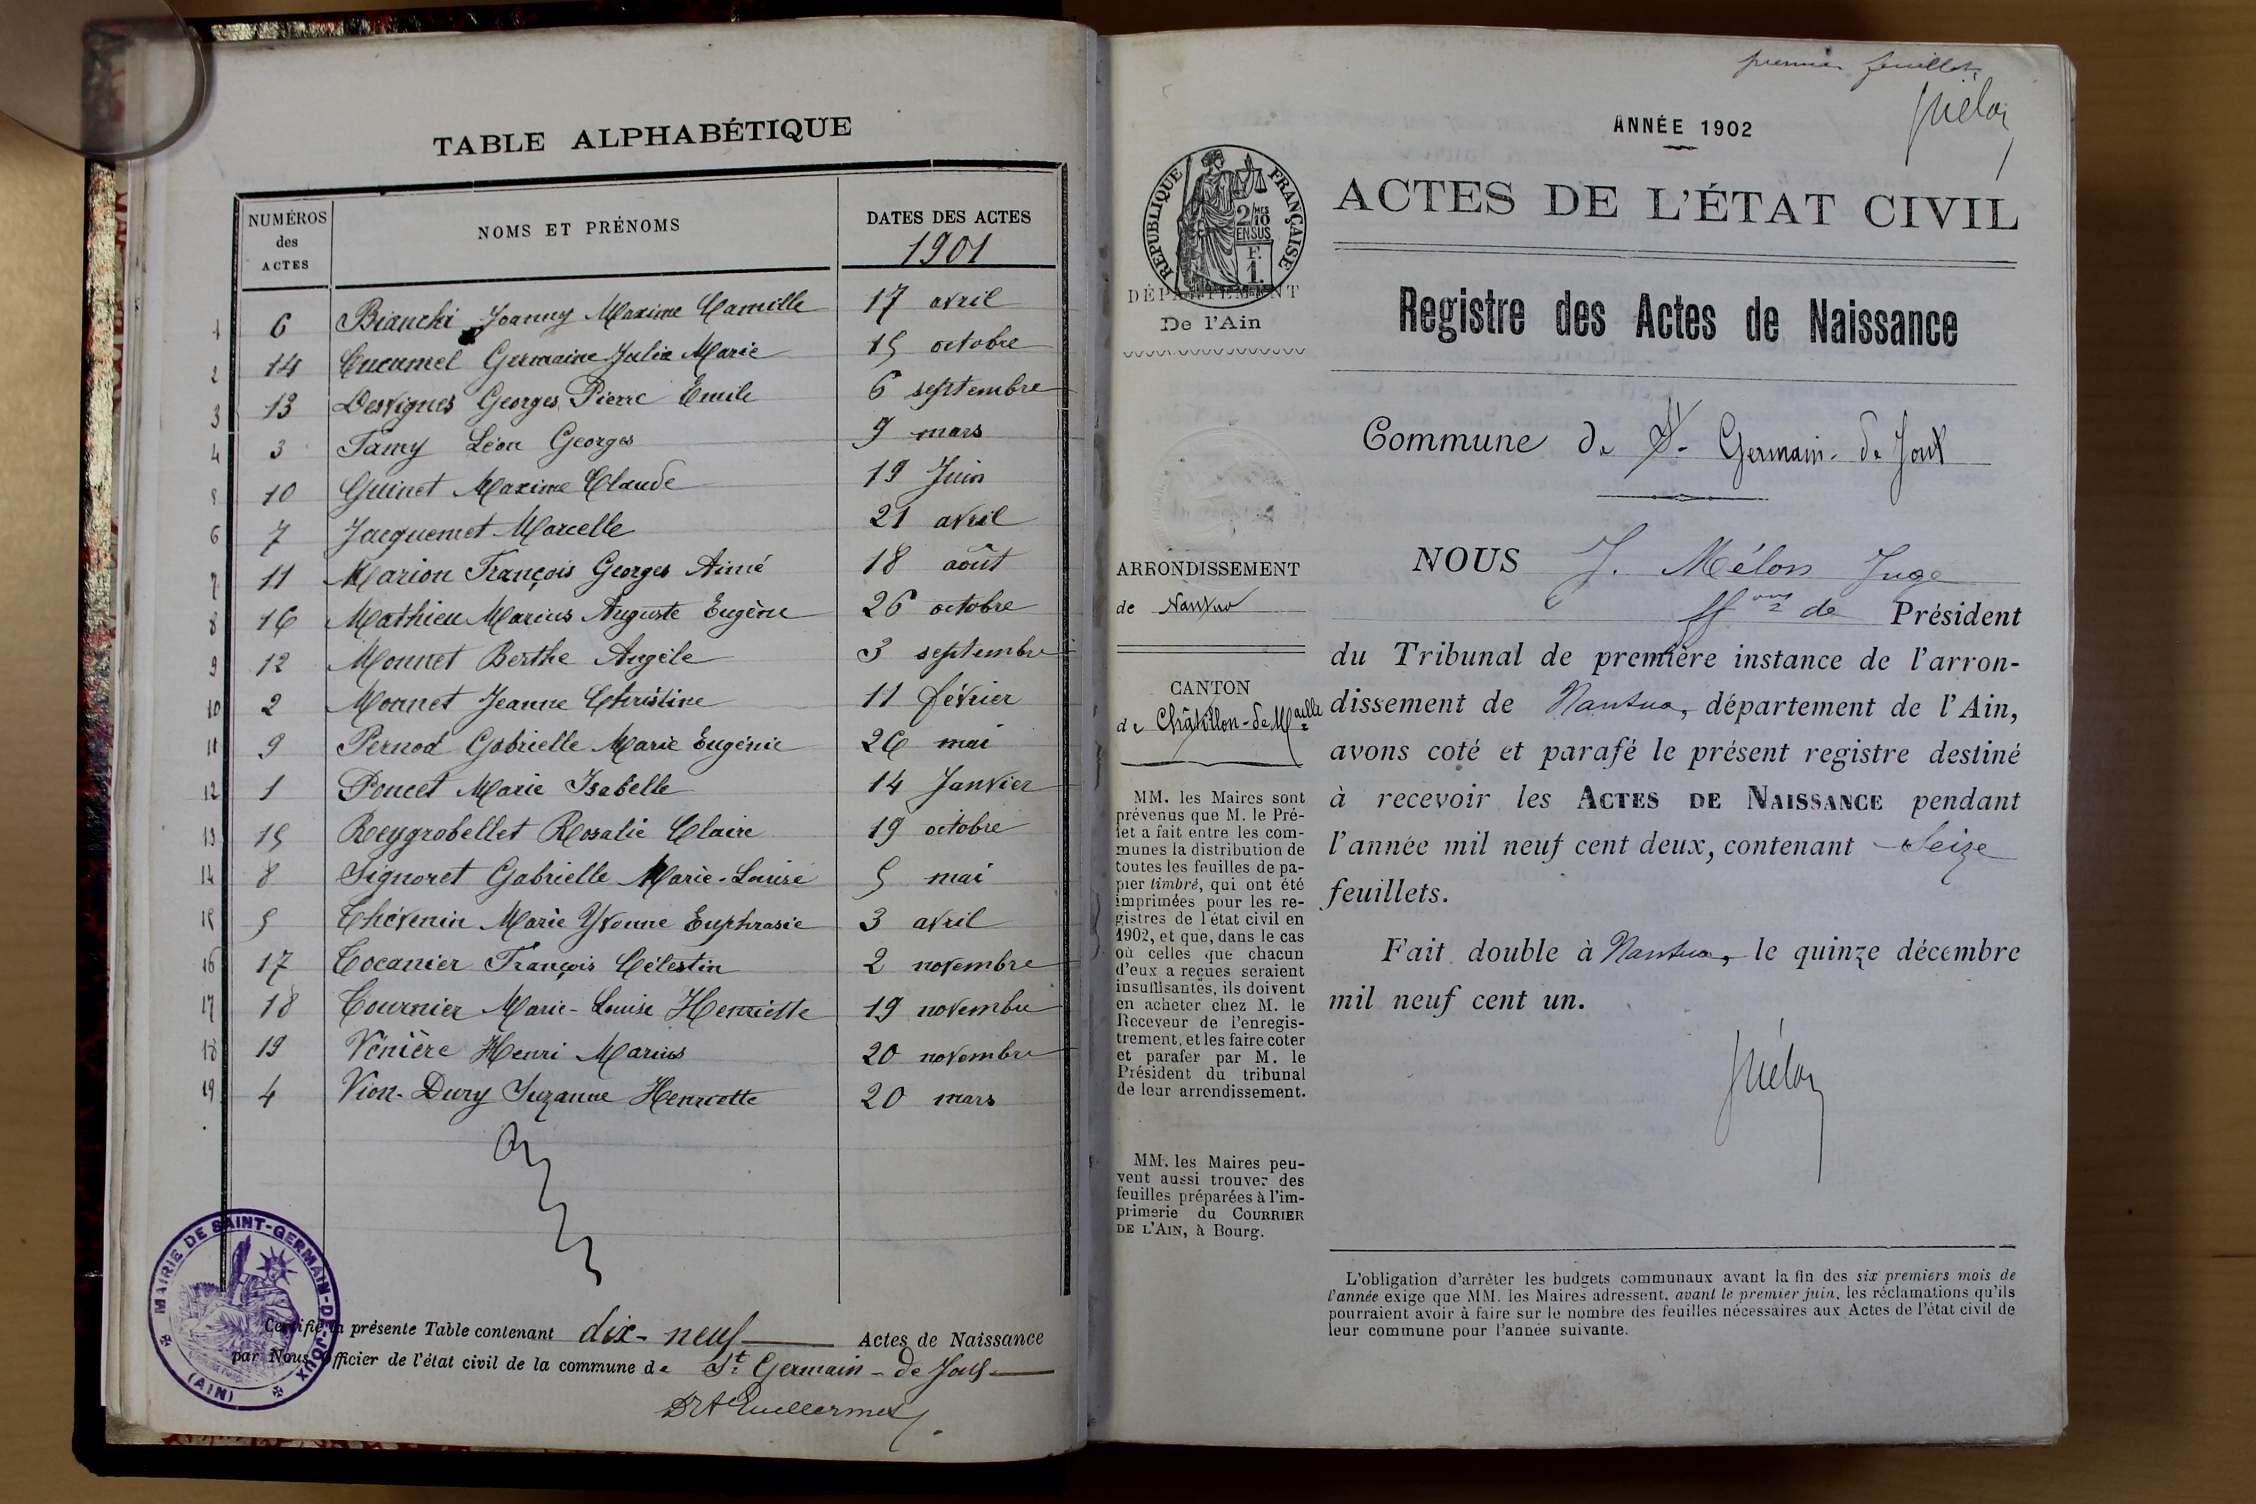 TABLE ALPHABÉTIQUE
NUMÉROS des ACTES
NOMS ET PRÉNOMS
DATES DES ACTES
1901
1 6 Bianchi Joanny Maxime Camille 17 avril
2 14 Cucumel Germaine Julia Marie 15 octobre
3 13 Desvignes Georges Pierre Emile 6 septembre
4 3 Famy Léon Georges 9 mars
5 10 Guinet Maxime Claude 19 Juin
6 7 Jacquemet Marcelle 21 avril
7 11 Marion François Georges Aimé 18 août
8 16 Mathieu Marius Auguste Eugène 26 octobre
9 12 Monnet Berthe Angèle 3 septembre
10 2 Monnet Jeanne Christine 11 février
11 9 Pernod Gabrielle Marie Eugénie 26 mai
12 1 Poncet Marie Isabelle 14 Janvier
13 15 Reygrobellet Rosalie Claire 19 octobre
14 8 Signoret Gabrielle Marie-Louise 5 mai
15 5 Thévenin Marie Yvonne Euphrasie 3 avril
16 17 Tocanier François Célestin 2 novembre
17 18 Tournier Marie-Louise Henriette 19 novembre
18 19 Vénière Henri Marius 20 novembre
19 4 Vion-Dury Suzanne Henriette 20 mars
MAIRIE DE SAINT-GERMAIN-DE-JOUX
(AIN)
Certifié la présente Table contenant dix-neuf Actes de Naissance
par Nous Officier de l'état civil de la commune de St Germain-de Joux
premier feuillet
ANNÉE 1902
RÉPUBLIQUE FRANÇAISE
2/MES 10
EN SUS
F. 1.
ACTES DE L'ÉTAT CIVIL
DÉPARTEMENT
De l'Ain
Registre des Actes de Naissance
Commune de St Germain-de Joux
ARRONDISSEMENT
de Nantua
CANTON
de Châtillon-de Mlle
MM. les Maires sont
prévenus que M. le Pré-
fet a fait entre les com-
munes la distribution de
toutes les feuilles de pa-
pier timbré, qui ont été
imprimées pour les re-
gistres de l'état civil en
1902, et que, dans le cas
où celles que chacun
d'eux a reçues seraient
insuffisantes, ils doivent
en acheter chez M. le
Receveur de l'enregis-
trement, et les faire coter
et parafer par M. le
Président du tribunal
de leur arrondissement.
MM. les Maires peu-
vent aussi trouver des
feuilles préparées à l'im-
primerie du COURRIER
DE L'AIN, à Bourg.
NOUS J. Mélon Juge
ffons de Président
du Tribunal de première instance de l'arron-
dissement de Nantua, département de l'Ain,
avons coté et parafé le présent registre destiné
à recevoir les ACTES DE NAISSANCE pendant
l'année mil neuf cent deux, contenant Seize
feuillets.
Fait double à Nantua, le quinze décembre
mil neuf cent un.
L'obligation d'arrêter les budgets communaux avant la fin des six premiers mois de
l'année exige que MM. les Maires adressent, avant le premier juin, les réclamations qu'ils
pourraient avoir à faire sur le nombre des feuilles nécessaires aux Actes de l'état civil de
leur commune pour l'année suivante.